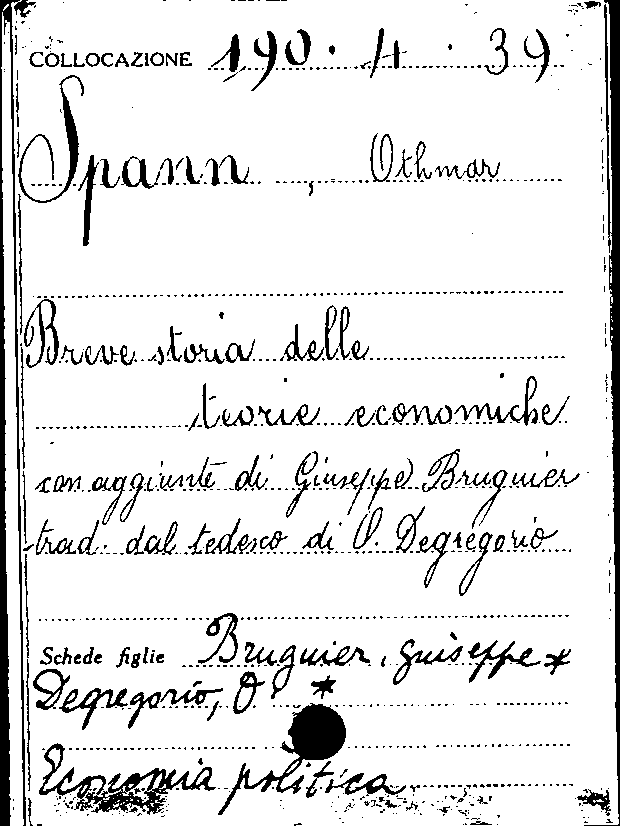 COLLOCAZIONE 190 · 4 · 39
Spann, Othmar
Breve storia delle
teorie economiche
con aggiunte di Giuseppe Bruguier
trad. dal tedesco di O. Degregorio
Schede figlie Bruguier, Giuseppe *
Degregorio, O. *
Economia politica